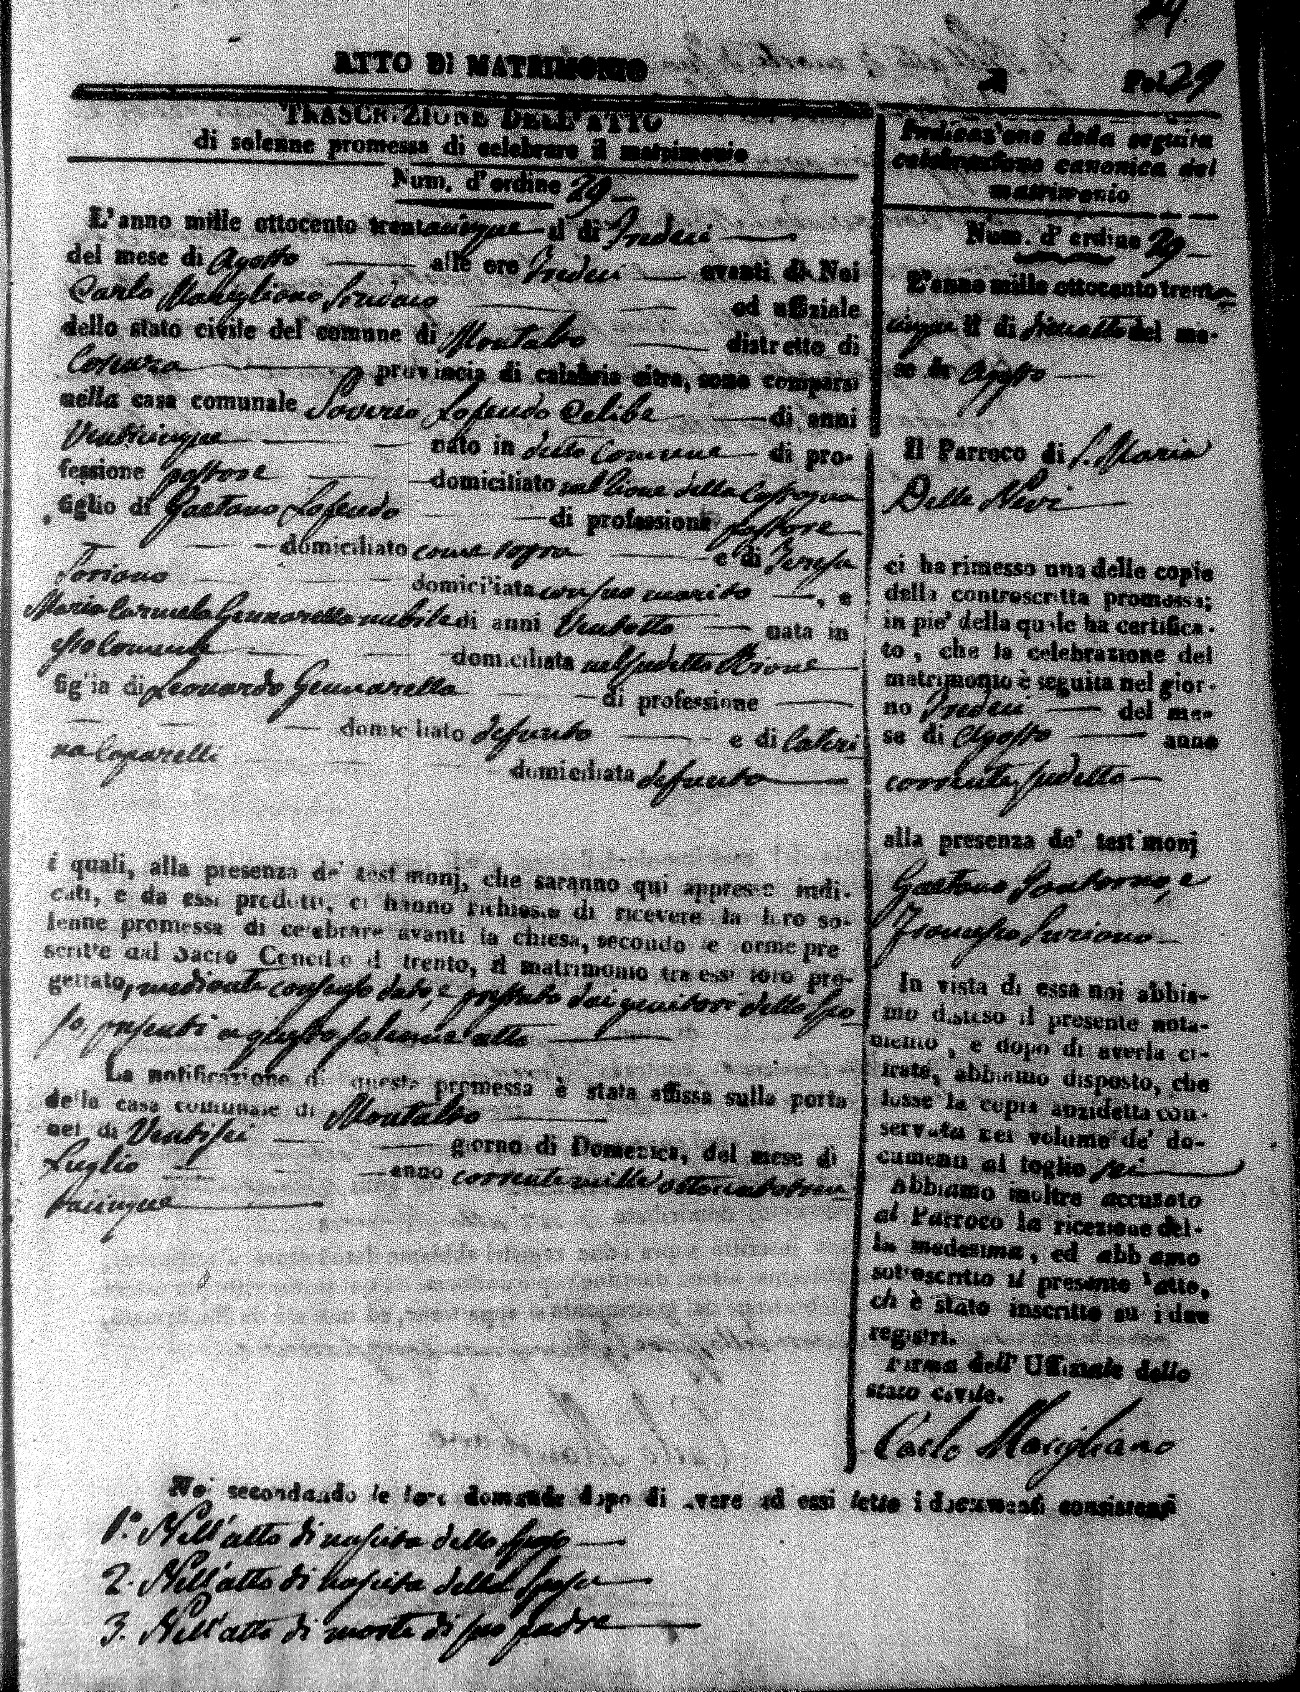 24
ATTO DI MATRIMONIO
Fol. 29
TRASCRIZIONE DELL'ATTO
di solenne promessa di celebrare il matrimonio
Num. d'ordine 29
L'anno mille ottocento trentacinque il dì Tredici
del mese di Agosto alle ore Tredici avanti di Noi
Carlo Marigliano Sindaco ed uffiziale
dello stato civile del comune di Montalto distretto di
Cosenza provincia di calabria citra, sono comparsi
nella casa comunale Saverio Celibe di anni
Venticinque nato in detto Comune di pro-
fessione pastore domiciliato nel Rione della
figlio di Gaetano di professione pastore
domiciliato come sopra e di Teresa
Soriano domiciliata con suo marito, e
Maria Carmela Gennarella nubile di anni Ventotto nata in
esso Comune domiciliata nel sudetto Rione
figlia di Leonardo Gennarella di professione
domiciliato defunto e di Cateri
na Caparelli domiciliata defunta
i quali, alla presenza de' testimonj, che saranno qui appresso indi-
cati, e da essi prodotti, ci hanno richiesto di ricevere la loro so-
lenne promessa di celebrare avanti la chiesa, secondo le forme pre
scritte dal Sacro Concilio di trento, il matrimonio tra essi loro pro-
gettato, mediante consenso dato, e prestato dai genitori dello Spo
so, presenti a questo solenne atto
La notificazione di questa promessa è stata affissa sulla porta
della casa comunale di Montalto
nel dì Ventisei giorno di Domenica, del mese di
Luglio anno corrente mille ottocento tren
tacinque
Indicazione della seguita
celebrazione canonica del
matrimonio
Num. d'ordine 29
L'anno mille ottocento trenta
cinque il dì diciotto del me-
se di Agosto
Il Parroco di S. Maria
Della Nevi
ci ha rimesso una delle copie
della controscritta promessa;
in piè della quale ha certifica-
to, che la celebrazione del
matrimonio è seguita nel gior-
no Tredici del me-
se di Agosto anno
corrente sudetto
alla presenza de' testimonj
Gaetano Santorno, e
Francesco Suriano
In vista di essa noi abbia-
mo disteso il presente nota-
mento, e dopo di averla ci-
frata, abbiamo disposto, che
fosse la copia anzidetta con-
servata nel volume de' do-
cumenti al foglio sei
Abbiamo inoltre accusato
al Parroco la ricezione del-
la medesima, ed abbiamo
sottoscritto il presente atto,
ch'è stato inscritto su i due
registri.
Firma dell'Uffiziale dello
stato civile.
Carlo Marigliano
Noi secondando le loro domande dopo di avere ad essi letto i documenti consistenti
1.° Nell'atto di nascita dello Sposo
2. Nell'atto di nascita della Sposa
3. Nell'atto di morte di suo padre